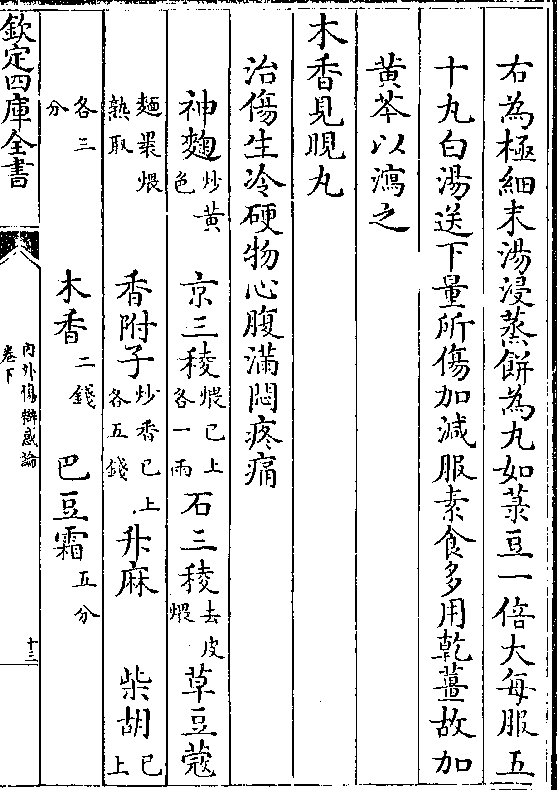 右為極細末湯浸蒸餅為丸如菉豆一倍大每服五
十丸白湯送下量所傷加減服素食多用乾薑故加
黄芩以瀉之
木香見晛丸
治傷生冷硬物心腹滿悶疼痛
神麴炒黄色 京三稜煨已上各一兩 石三稜去皮煨 草豆蔻
麵褁煨熟取 香附子炒香已上各五錢 升麻 柴胡已上
各三分 木香二錢 巴豆霜五分
欽定四庫全書 內外傷辯惑論 卷下 十三